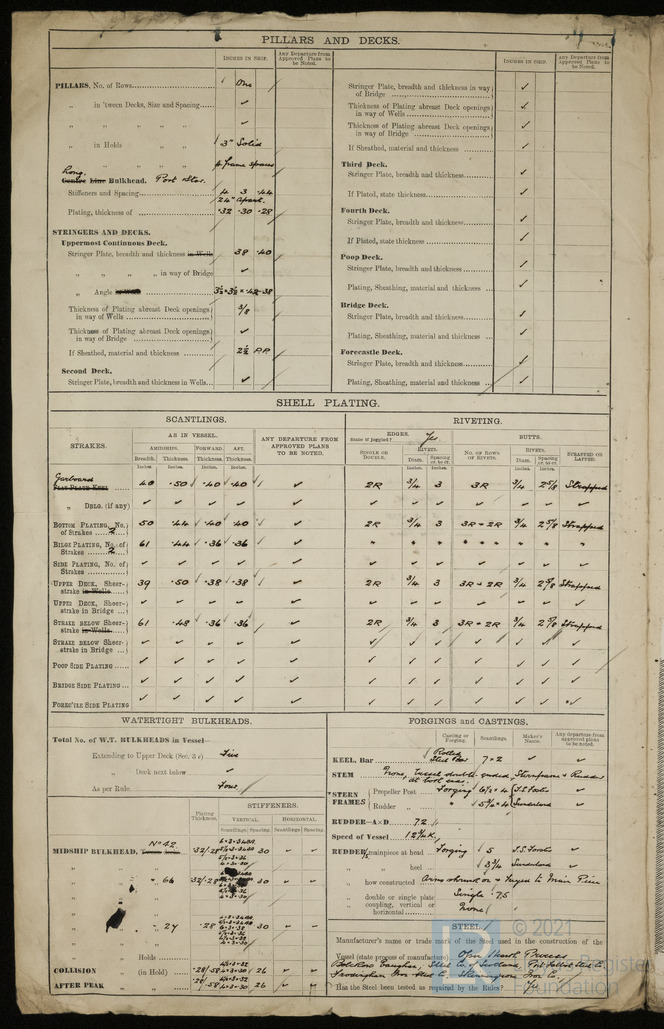 PILLARS AND DECKS.
INCHES IN SHIP.
Any Departure from Approved Plans to be Noted.
PILLARS, No. of Rows One
„ in 'tween Decks, Size and Spacing ✓
„ „ „ „ ✓
„ in Holds „ „ 3" Solid
„ „ „ „ 4 frame spaces
Long. Centre Line Bulkhead. Port Star.
Stiffeners and Spacing 4 3 .44
24" apart.
Plating, thickness of .32 .30 .28
STRINGERS AND DECKS.
Uppermost Continuous Deck.
Stringer Plate, breadth and thickness in Wells 38 .40
„ „ „ „ in way of Bridge ✓
„ Angle 3½ × 3½ × .42 .38
Thickness of Plating abreast Deck openings in way of Wells 3/8
Thickness of Plating abreast Deck openings in way of Bridge ✓
If Sheathed, material and thickness 2½ P.P.
Second Deck.
Stringer Plate, breadth and thickness in Wells ✓
INCHES IN SHIP.
Any Departure from Approved Plans to be Noted.
Stringer Plate, breadth and thickness in way of Bridge ✓
Thickness of Plating abreast Deck openings in way of Wells ✓
Thickness of Plating abreast Deck openings in way of Bridge ✓
If Sheathed, material and thickness ✓
Third Deck.
Stringer Plate, breadth and thickness ✓
If Plated, state thickness ✓
Fourth Deck.
Stringer Plate, breadth and thickness ✓
If Plated, state thickness ✓
Poop Deck.
Stringer Plate, breadth and thickness ✓
Plating, Sheathing, material and thickness ✓
Bridge Deck.
Stringer Plate, breadth and thickness ✓
Plating, Sheathing, material and thickness ✓
Forecastle Deck.
Stringer Plate, breadth and thickness ✓
Plating, Sheathing, material and thickness ✓
SHELL PLATING.
SCANTLINGS.
RIVETING.
STRAKES.
AS IN VESSEL.
AMIDSHIPS. FORWARD. AFT.
Breadth. Thickness. Thickness. Thickness.
Inches. Inches. Inches. Inches.
ANY DEPARTURE FROM APPROVED PLANS TO BE NOTED.
EDGES.
State if joggled? Yes
SINGLE OR DOUBLE.
RIVETS.
Diam. Spacing cr. to cr.
Inches. Inches.
BUTTS.
NO. OF ROWS OF RIVETS.
RIVETS.
Diam. Spacing cr. to cr.
Inches. Inches.
STRAPPED OR LAPPED.
Garboard
FLAT PLATE KEEL 40 .50 .40 .40 ✓ 2R 3/4 3 3R 3/4 2 5/8 Strapped
„ DBLG. (if any) ✓ ✓ ✓ ✓ ✓ ✓ ✓ ✓ ✓ ✓ ✓ ✓
BOTTOM PLATING, No. of Strakes 2 50 .44 .40 .40 ✓ 2R 3/4 3 3R - 2R 3/4 2 5/8 Strapped
BILGE PLATING, No. of Strakes 2 61 .44 .36 .36 ✓ „ „ „ „ „ „ „ „
SIDE PLATING, No. of Strakes ✓ ✓ ✓ ✓ ✓ ✓ ✓ ✓ ✓ ✓ ✓ ✓
UPPER DECK, Sheerstrake in Wells 39 .50 .38 .38 ✓ 2R 3/4 3 3R - 2R 3/4 2 5/8 Strapped
UPPER DECK, Sheerstrake in Bridge ✓ ✓ ✓ ✓ ✓ ✓ ✓ ✓ ✓ ✓ ✓ ✓
STRAKE BELOW Sheerstrake in Wells 61 .48 .36 .36 ✓ 2R 3/4 3 3R - 2R 3/4 2 5/8 Strapped
STRAKE BELOW Sheerstrake in Bridge ✓ ✓ ✓ ✓ ✓ ✓ ✓ ✓ ✓ ✓ ✓ ✓
POOP SIDE PLATING ✓ ✓ ✓ ✓ ✓ ✓ ✓ ✓ ✓ ✓ ✓ ✓
BRIDGE SIDE PLATING ✓ ✓ ✓ ✓ ✓ ✓ ✓ ✓ ✓ ✓ ✓ ✓
FOREC'TLE SIDE PLATING ✓ ✓ ✓ ✓ ✓ ✓ ✓ ✓ ✓ ✓ ✓ ✓
WATERTIGHT BULKHEADS.
Total No. of W.T. BULKHEADS in Vessel—
Extending to Upper Deck (Sec. 3 c) Five
„ Deck next below ✓
As per Rule Four
Plating Thickness.
STIFFENERS.
VERTICAL. HORIZONTAL.
Scantlings Spacing. Scantlings Spacing.
MIDSHIP BULKHEAD, No 42 .32/.28 30 ✓ ✓
„ „ 66 .32/.28 30 ✓ ✓
„ „ 27 .28 30 ✓ ✓
„ Holds
COLLISION „ (in Hold) 26 ✓ ✓
AFTER PEAK „ 26 ✓ ✓
FORGINGS and CASTINGS.
Casting or Forging.
Scantlings.
Maker's Name.
Any departure from approved plans to be noted.
KEEL, Bar Rolled Steel Bar 7 × 2 ✓ ✓
STEM None, vessel double ended, Sternframe & Rudder at both ends.
*STERN FRAMES
Propeller Post Forging 6½ × 4 ✓
Rudder „ „ 5¾ × 4 Sunderland ✓
RUDDER—A × D 72
Speed of Vessel 12¾ K.
RUDDER mainpiece at head Forging 5 ✓
„ „ heel 3¾ Sunderland ✓
„ how constructed Arms shrunk on & keyed to Main Piece
„ double or single plate Single .75
„ coupling, vertical or horizontal None
STEEL.
Manufacturer's name or trade mark of the Steel used in the construction of the
Vessel (state process of manufacture). Open Hearth Process
Bolckow Vaughan, Steel Co. of Scotland, Port Talbot Steel Co.
Frodingham Iron Steel Co. Skinningrove Iron Co.
Has the Steel been tested as required by the Rules? Yes
© 2021
Register
Foundation